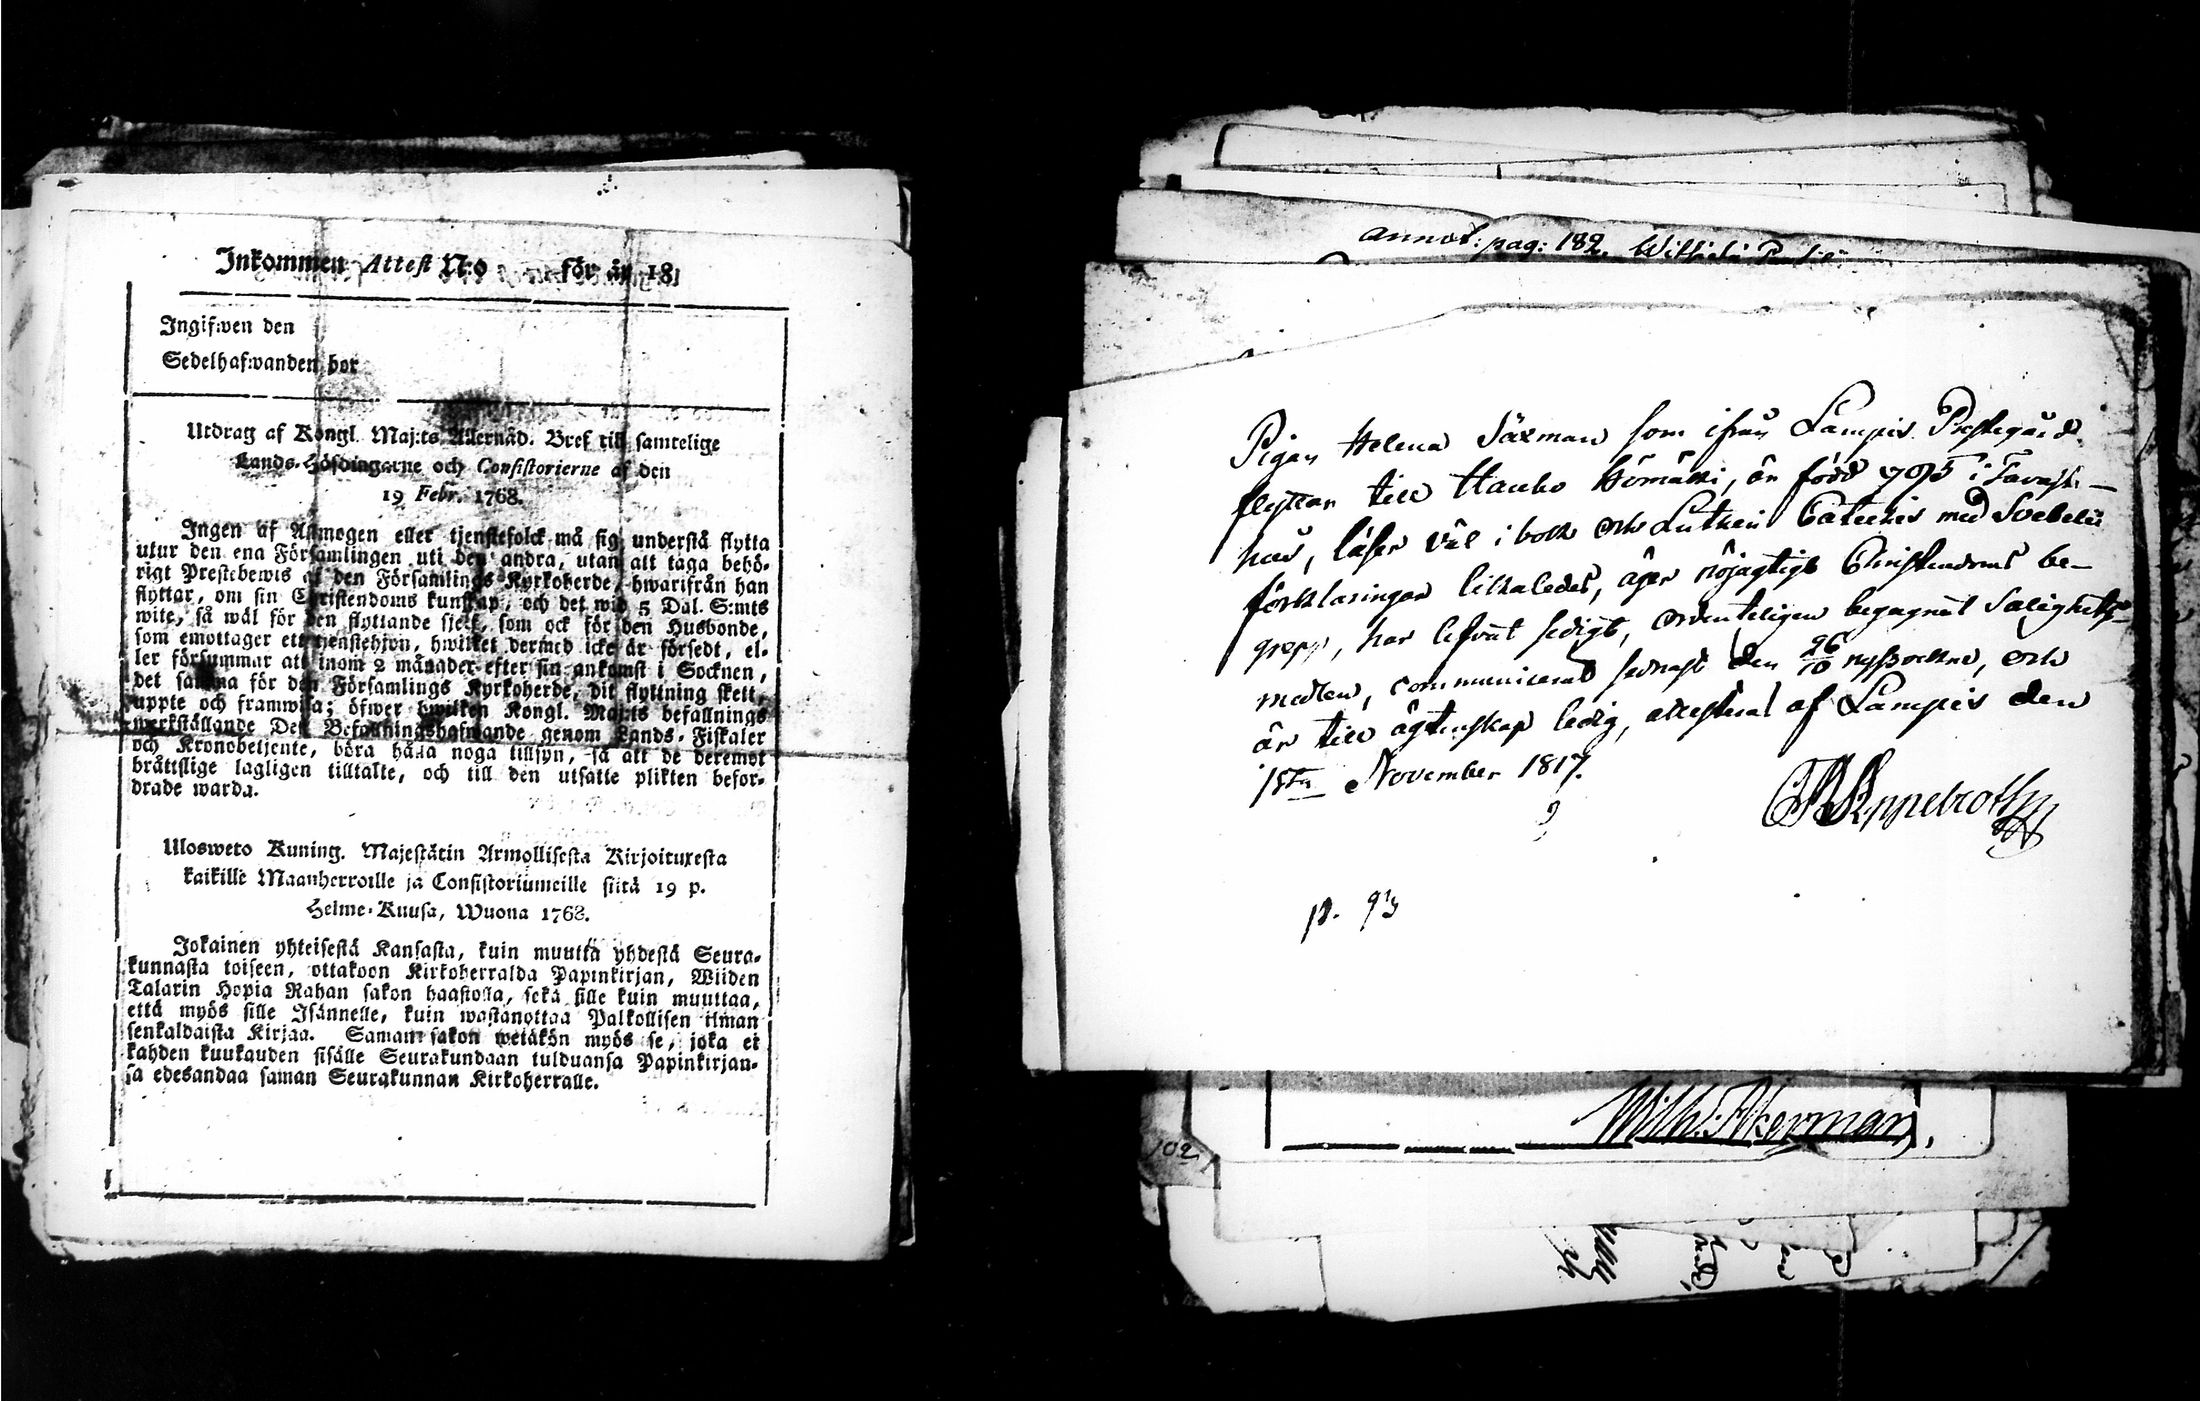 Inkommen Attest N:o för år 181
Ingifwen den
Sedelhafwanden bor
Utdrag af Kongl. Maj:ts Allernåd. Bref till samtelige
Lands-Höfdingarne och Consistorierne af den
19 Febr. 1768.
Ingen af Allmogen eller tjenstefolck må sig understå flytta
utur den ena Församlingen uti den andra, utan att taga behö-
rigt Prestebewis af den Församlings Kyrkoherde, hwarifrån han
flyttar, om sin Christendoms kunskap, och det wid 5 Dal. S:mts
wite, så wäl för den flyttande sjelf, som ock för den Husbonde,
som emottager ett tjenstehjon, hwilket dermed icke är försedt, el-
ler försummar att inom 2 månader efter sin ankomst i Socknen,
det samma för den Församlings Kyrkoherde, dit flyttning skett,
uppte och framwisa; öfwer hwilken Kongl. Maj:ts befallnings
werkställande Des Befallningshafwande genom Lands-Fiskaler
och Kronobetjente, böra hålla noga tillsyn, så att de deremot
bråttslige lagligen tilltalte, och till den utsatte plikten befor-
drade warda.
Ulosweto Kuning. Majestätin Armollisesta Kirjoituxesta
kaikille Maanherroille ja Consistoriumeille siitä 19 p.
Helme-Kuusa, Wuona 1768.
Jokainen yhteisestä Kansasta, kuin muutta yhdestä Seura-
kunnasta toiseen, ottakoon Kirkoherralda Papinkirjan, Wiiden
Talarin Hopia Rahan sakon haastolla, sekä sille kuin muuttaa,
että myös sille Isännelle, kuin wastanottaa Palkollisen ilman
senkaldaista Kirjaa. Saman sakon wetäkön myös se, joka ei
kahden kuukauden sisälle Seurakundaan tulduansa Papinkirjan-
sa edesandaa saman Seurakunnan Kirkoherralle.
annot: pag: 182. Wilhelm
Pigan Helena Säxman som ifrån Lampis Prestegård
flyttar till Hauho Hömäki, är född 1795 i Tavast-
hus, läser väl i bok och Lutheri Cateches med Svebelii
förklaringar likaledes, äger nöjagtigt Christendoms be-
grepp, har lefvat sedigt, ordenteligen begagnat Salighets-
medlen, communicerat sednast den 26/10 nyssvekne, och
är till ägtenskap ledig, attesteras af Lampis den
15de November 1817.
p. 93
Wilh: Åkerman.
102